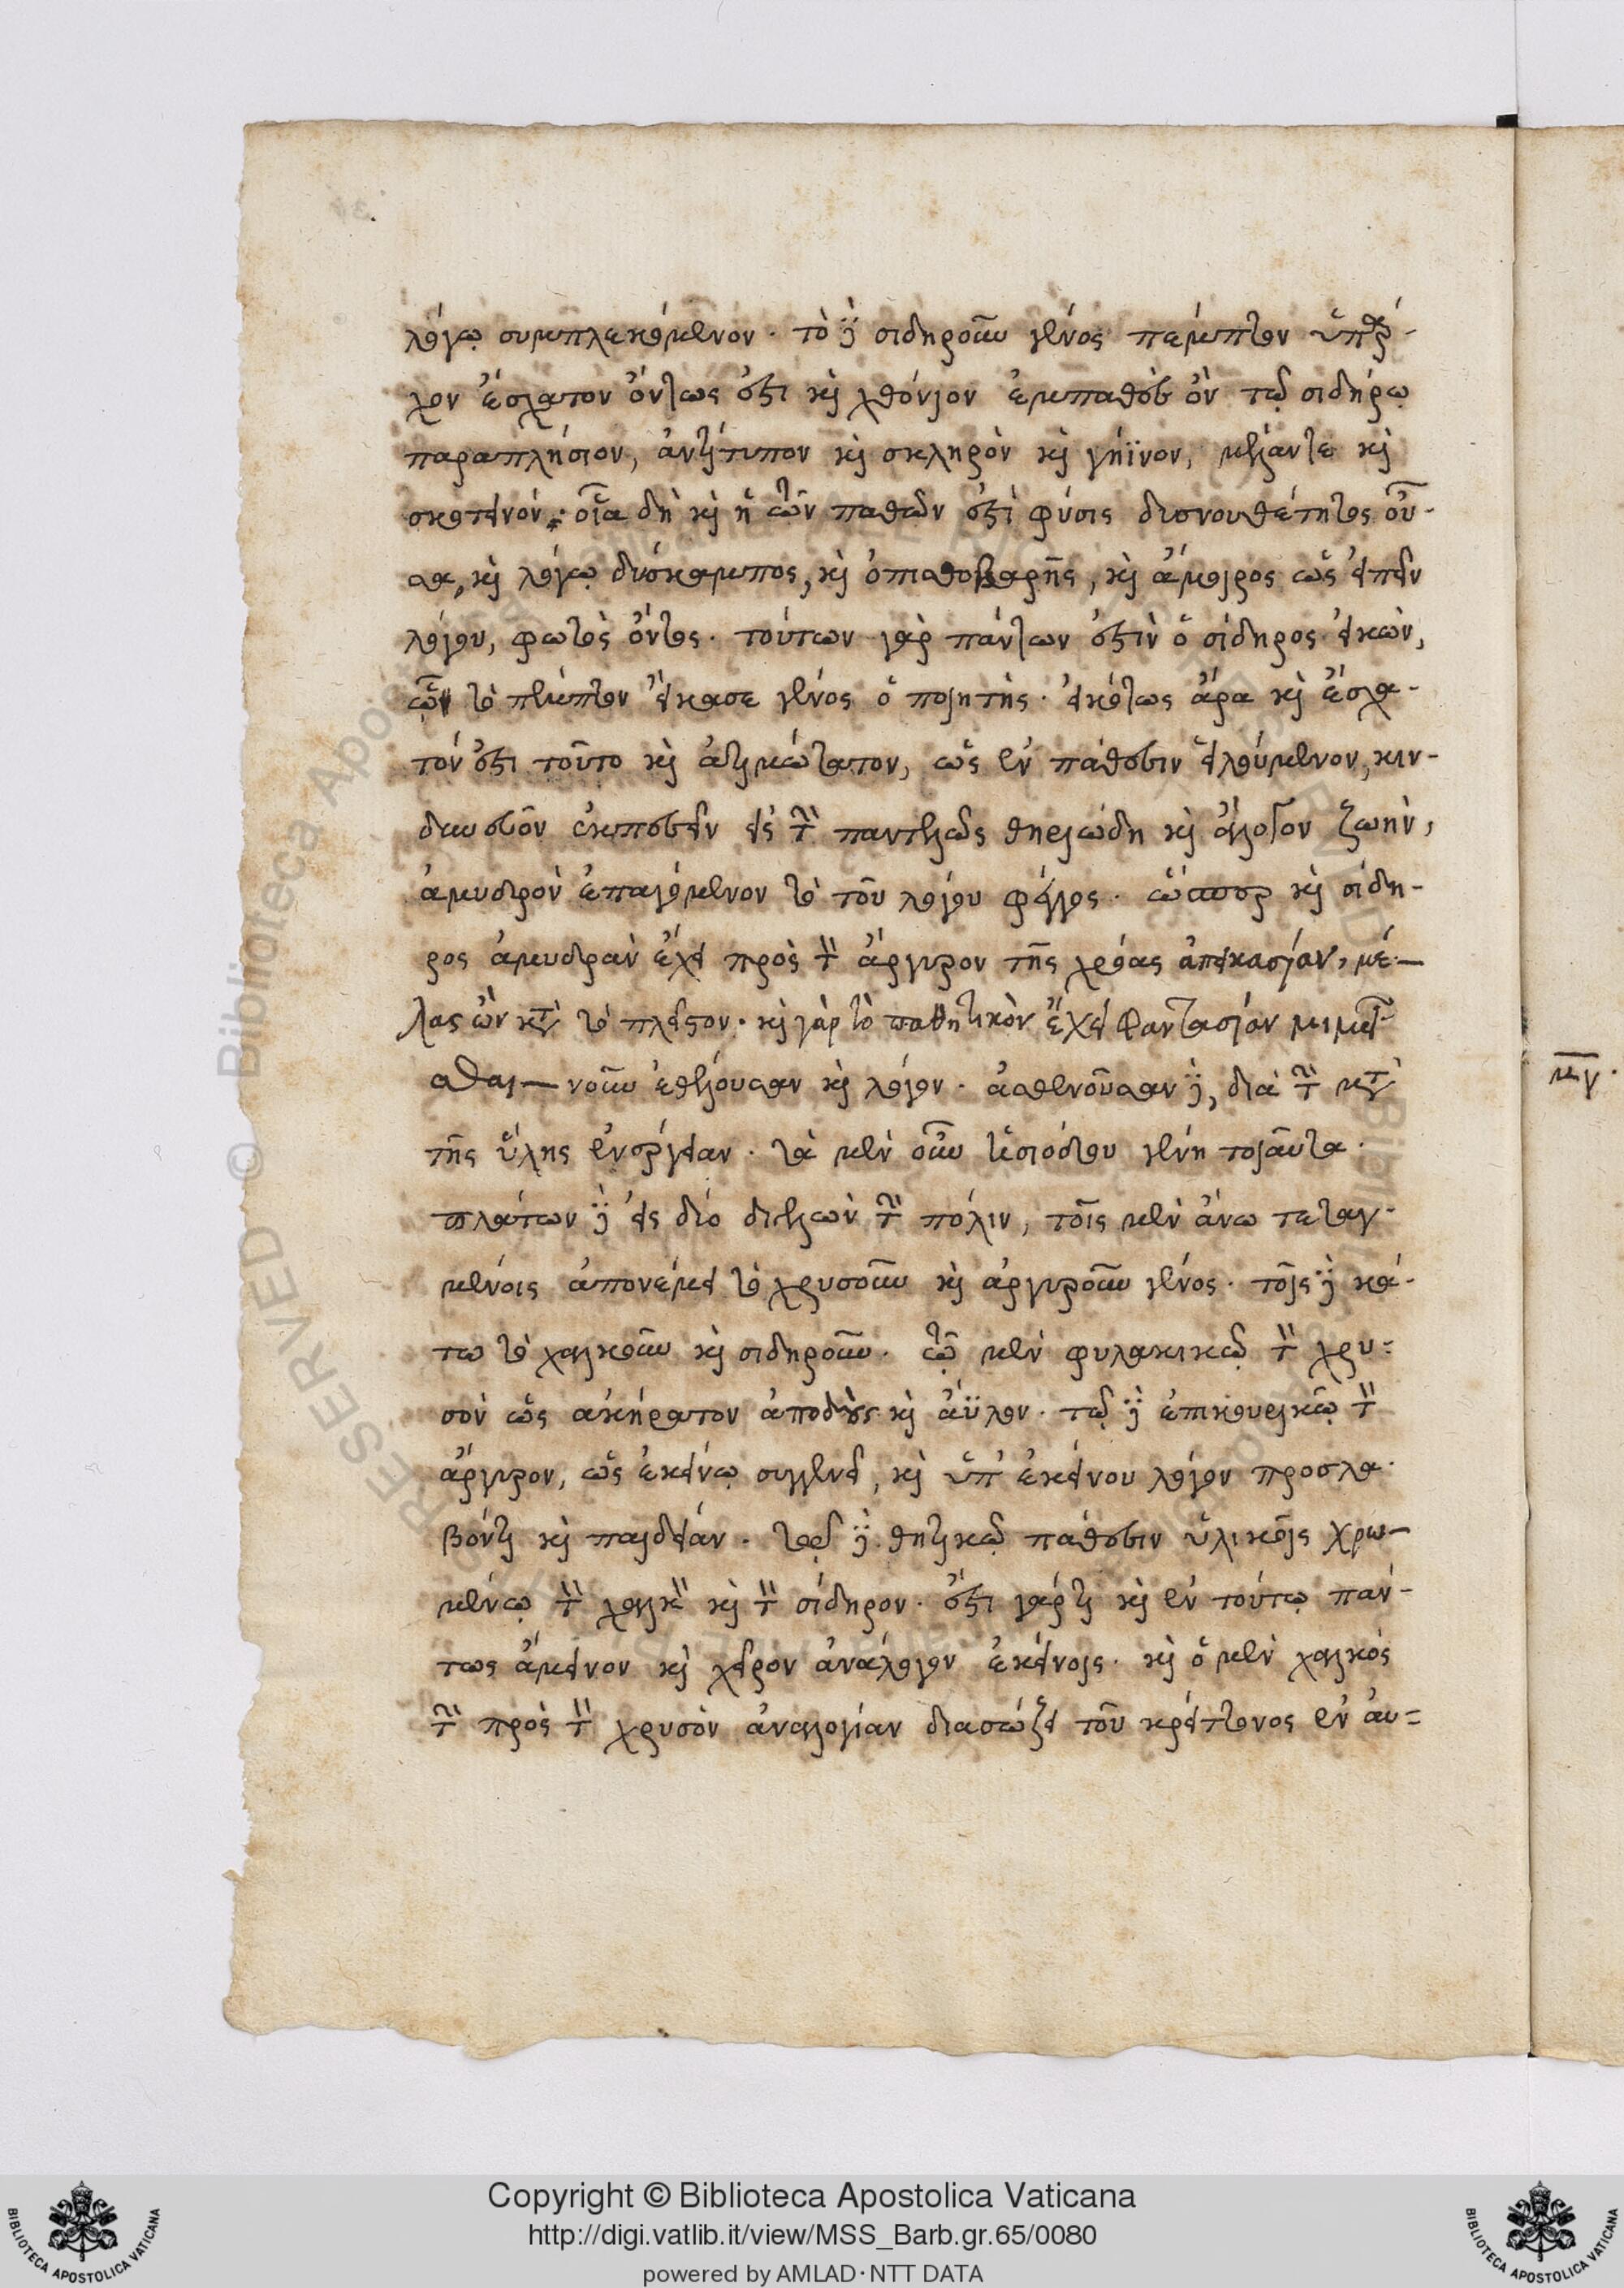 λόγῳ συμπλεκόμενον. τὸ δὲ σιδηροῦν γένος πέμπτον ὑπάρ-
χον ἔσχατον ὄντως ἐστὶ καὶ χθόνιον ἐμπαθὲς ὂν τῷ σιδήρῳ
παραπλήσιον, ἀντίτυπον καὶ σκληρὸν καὶ γήϊνον, μέλαν τε καὶ
σκοτεινόν. οἵα δὴ καὶ ἡ τῶν παθῶν ἐστὶ φύσις δυσνουθέτητος οὖ-
σα, καὶ λόγῳ δύσκαμπος, καὶ ὀπισθοβαρὴς, καὶ ἄμοιρος ὡς εἰπεῖν
λόγου, φωτὸς ὄντος. τούτων γὰρ πάντων ἐστὶν ὁ σίδηρος εἰκὼν,
ᾧ τὸ πέμπτον εἴκασε γένος ὁ ποιητής. εἰκότως ἄρα καὶ ἔσχα-
τόν ἐστι τοῦτο καὶ ἀτιμώτατον, ὡς ἐν πάθεσιν εἰλούμενον, κιν-
δυνεῦον ἐκπεσεῖν εἰς τὴν παντελῶς θηριώδη καὶ ἄλογον ζωὴν,
ἀμυδρὸν ἐπαγόμενον τὸ τοῦ λόγου φέγγος. ὥσπερ καὶ σίδη-
ρος ἀμυδρὰν ἔχει πρὸς τὸν ἄργυρον τῆς χρόας ἀπεικασίαν, μέ-
λας ὢν κατὰ τὸ πλεῖστον. καὶ γὰρ τὸ παθητικὸν ἔχει φαντασίαν μιμεῖ-
σθαι νοῦν ἐθέλουσαν καὶ λόγον. ἀσθενοῦσαν δὲ, διὰ τὴν μετὰ
τῆς ὕλης ἐνέργειαν. τὰ μὲν οὖν Ἡσιόδου γένη τοιαῦτα.
πλάτων δὲ εἰς δύο διελὼν τὴν πόλιν, τοῖς μὲν ἄνω τεταγ-
μένοις ἀπονέμει τὸ χρυσοῦν καὶ ἀργυροῦν γένος. τοῖς δὲ κά-
τω τὸ χαλκοῦν καὶ σιδηροῦν. τῷ μὲν φυλακικῷ τὸν χρυ-
σὸν ὡς ἀκήρατον ἀποδοὺς καὶ ἄϋλον. τῷ δὲ ἐπικουρικῷ τὸν
ἄργυρον, ὡς ἐκείνῳ συγγενεῖ, καὶ ὑπ' ἐκείνου λόγον προσλα-
βόντι καὶ παιδείαν. τῷ δὲ θητικῷ πάθεσιν ὑλικοῖς χρω-
μένῳ τὸν χαλκὸν καὶ τὸν σίδηρον. ἔστι γάρ τι καὶ ἐν τούτῳ πάν-
τως ἄμεινον καὶ χεῖρον ἀνάλογον ἐκείνοις. καὶ ὁ μὲν χαλκός
τὴν πρὸς τὸν χρυσὸν ἀναλογίαν διασώζει τοῦ κρείττονος ἐν αὐ-
μγ.
Copyright © Biblioteca Apostolica Vaticana
http://digi.vatlib.it/view/MSS_Barb.gr.65/0080
powered by AMLAD·NTT DATA